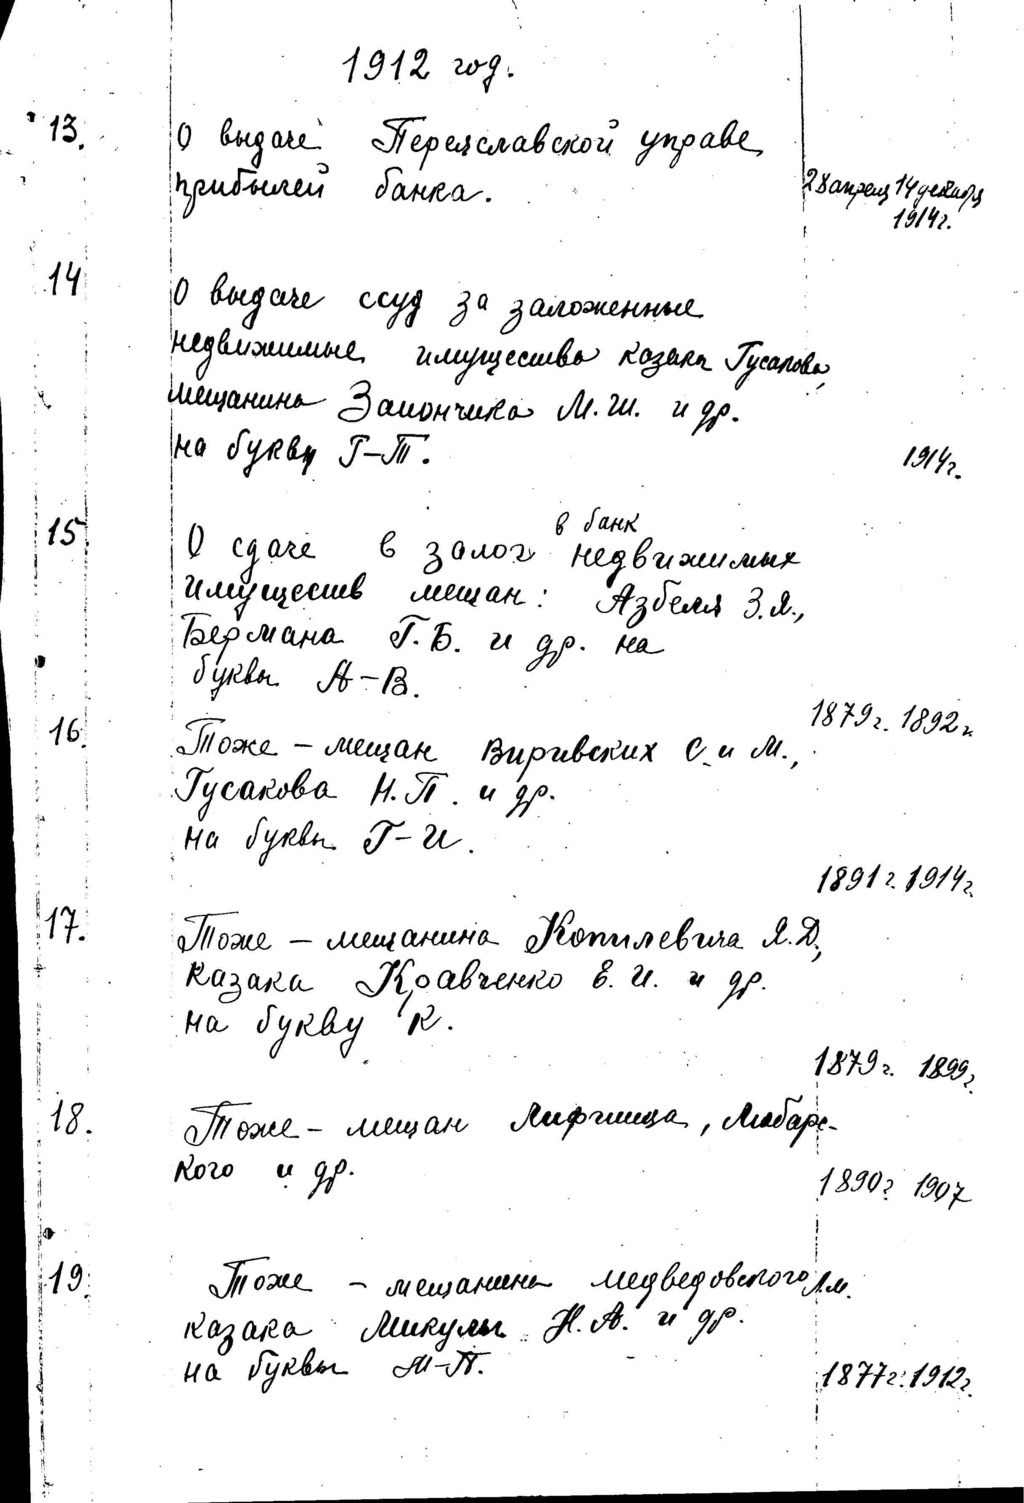 1912 год.
13. О выдаче Переяславской управе
прибылей банка.
28 апреля 14 декабря
1914г.
14 О выдаче ссуд за заложенные
недвижимые имущества казака Гусакова,
мещанина Заиончика М.Ш. и др.
на букву Г-Т.
1914г.
15. О сдаче в залог в банк недвижимых
имуществ мещан: Азбеля З.Я.,
Бермана Г.Б. и др. на
буквы А-В.
1879г. 1892г.
16. Тоже - мещан Виривских С. и М.,
Гусакова Н.П. и др.
на буквы Г-И.
1891г. 1914г.
17. Тоже - мещанина Копилевича Я.Д.,
казака Кравченко Е.И. и др.
на букву К.
1879г. 1899г.
18. Тоже - мещан Лифшица, Любарс-
кого и др.
1890г 1907
19. Тоже - мещанина Медведовского
казака Микулы Н.А. и др.
на буквы М-П.
1877г. 1912г.